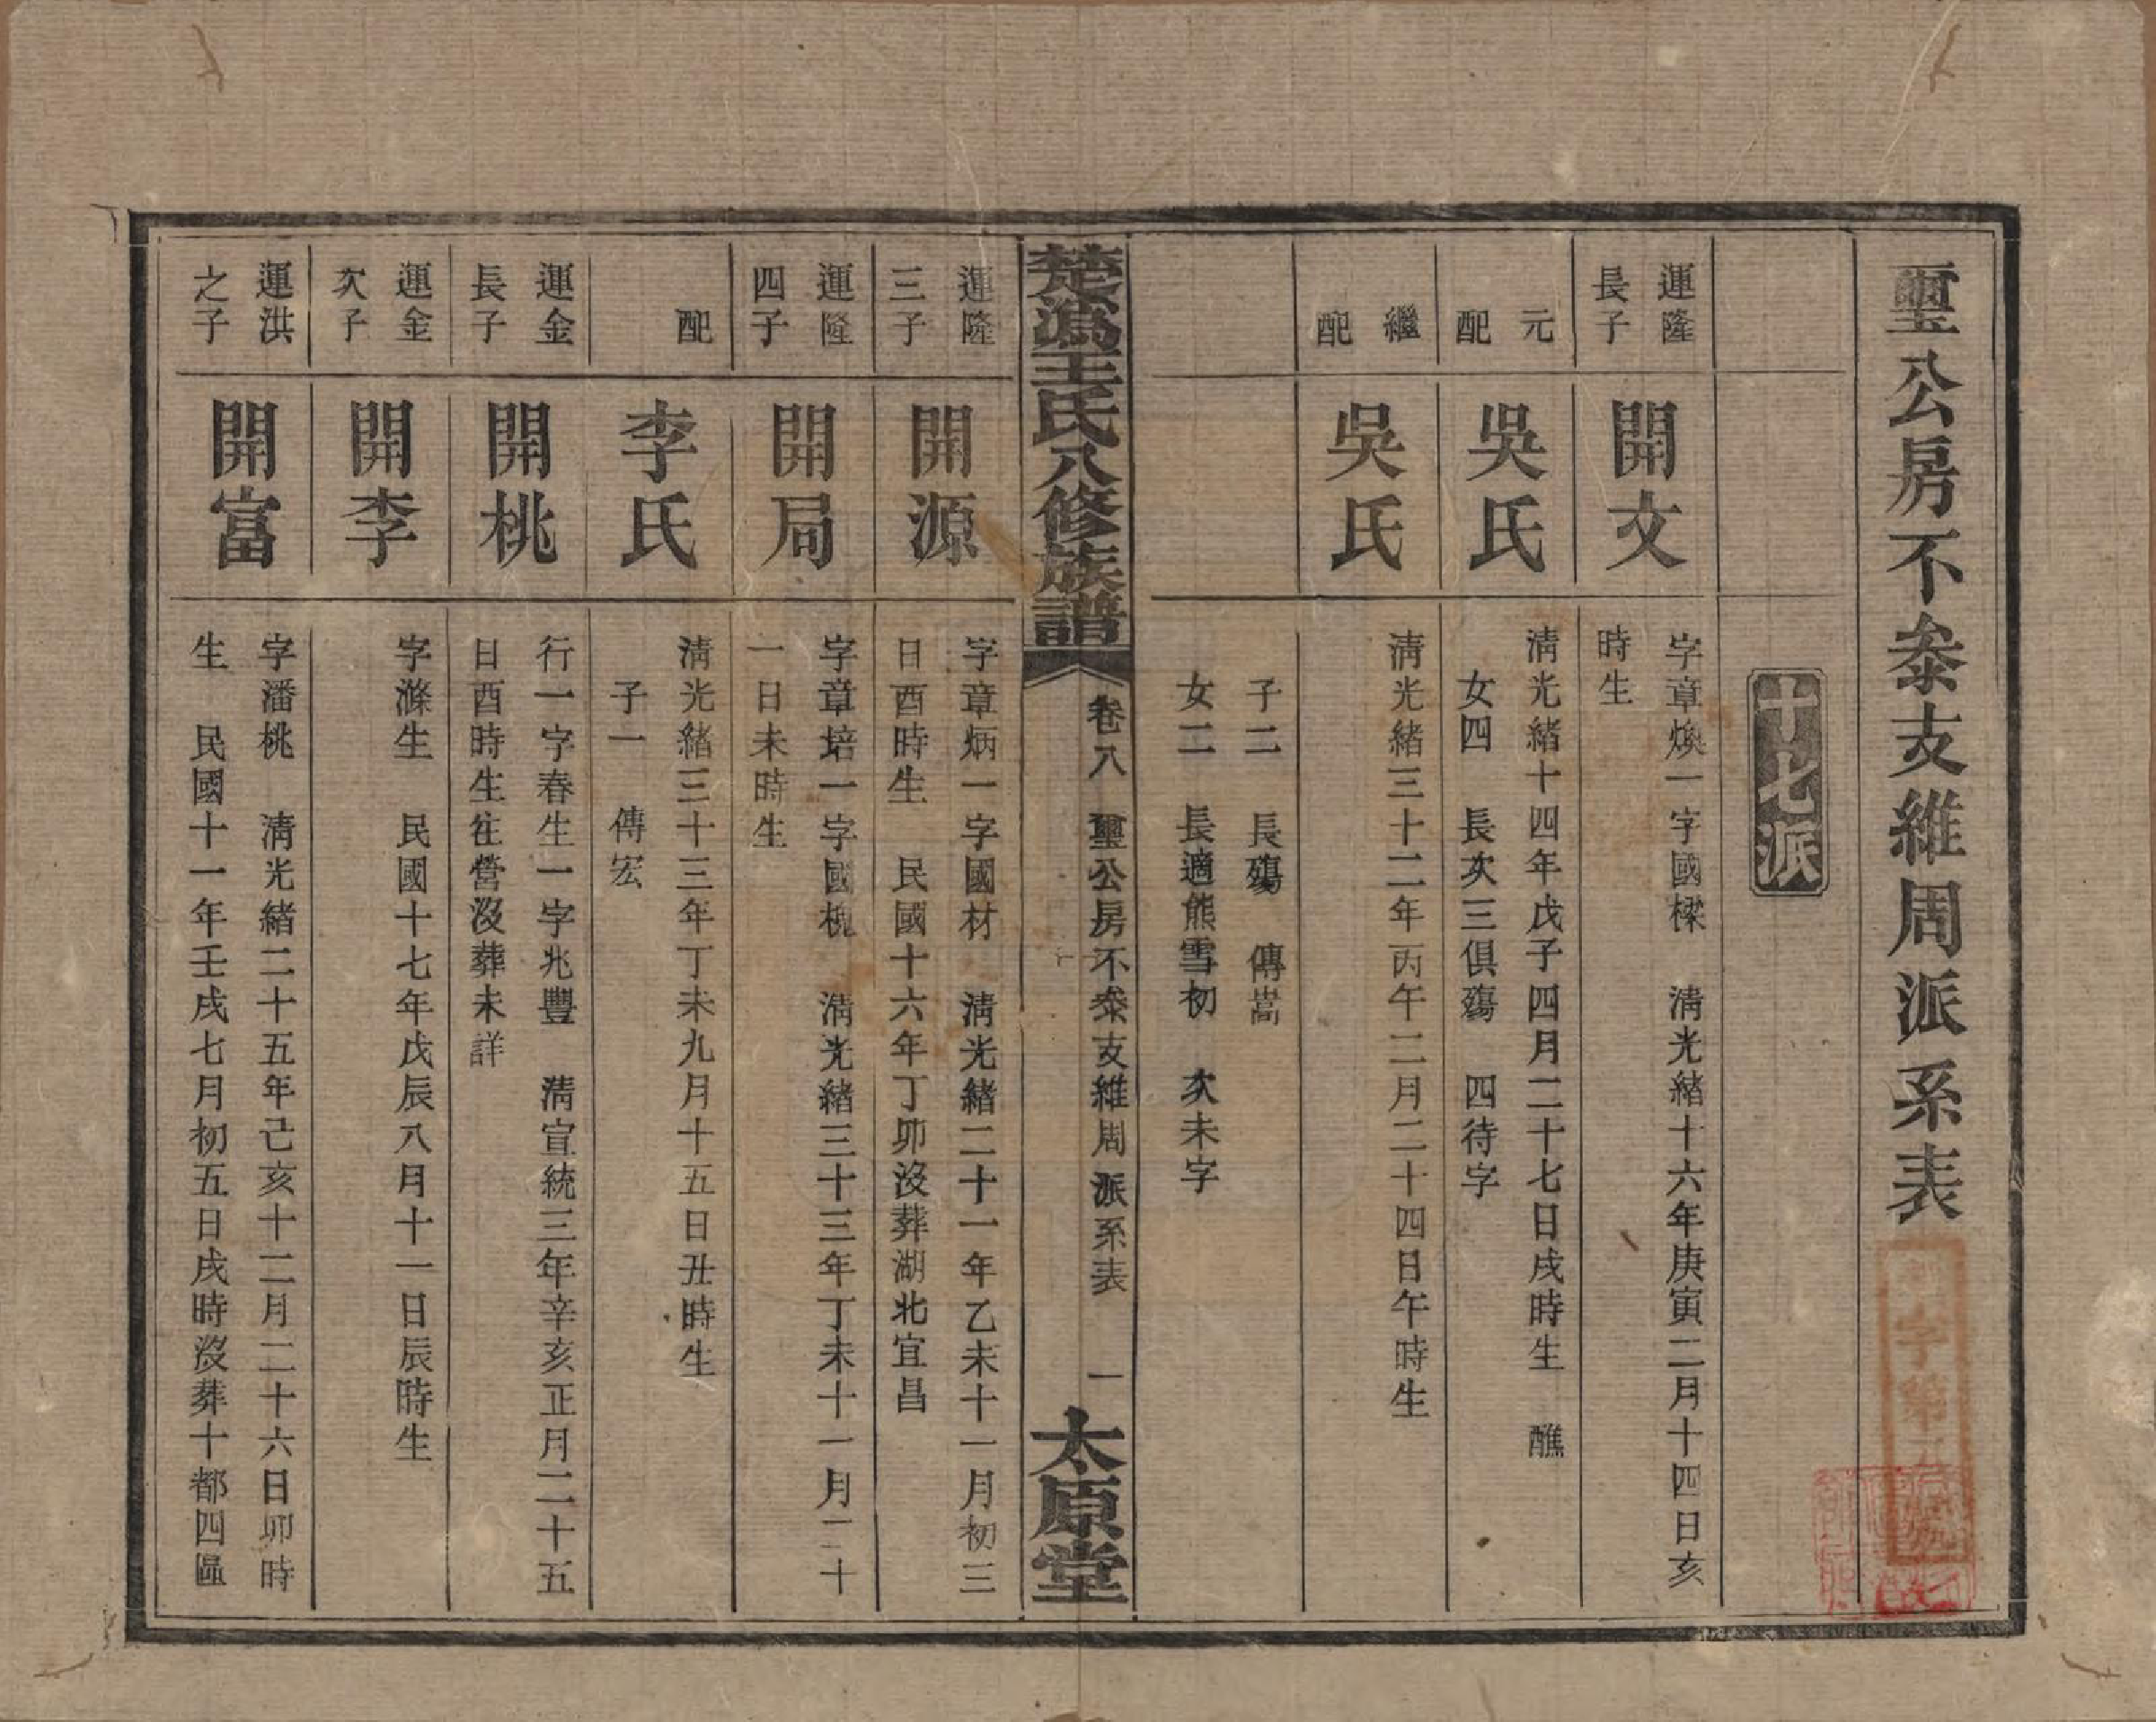 璽公房不叅支維周派系表
十七派
運隆
長子
開文
字章煥一字國樑　清光緒十六年庚寅二月十四日亥
時生
元
配
吳氏
清光緒十四年戊子四月二十七日戌時生　醮
女四　長次三俱殤　四待字
繼
配
吳氏
清光緒三十二年丙午二月二十四日午時生
子二　長殤　傳嵩
女二　長適熊雪初　次未字
楚溈王氏八修族譜
卷八　璽公房不叅支維周派系表　一
太原堂
運隆
三子
開源
字章炳一字國材　清光緒二十一年乙未十一月初三
日酉時生　民國十六年丁卯沒葬湖北宜昌
運隆
四子
開局
字章培一字國　清光緒三十三年丁未十一月二十
一日未時生
配
李氏
清光緒三十三年丁未九月十五日丑時生
子一　傳宏
運金
長子
開桃
行一字春生一字兆豐　清宣統三年辛亥正月二十五
日酉時生往營沒葬未詳
運金
次子
開李
字滌生　民國十七年戊辰八月十一日辰時生
運洪
之子
開富
字潘桃　清光緒二十五年己亥十二月二十六日卯時
生　民國十一年壬戌七月初五日戌時沒葬十都四區
字第